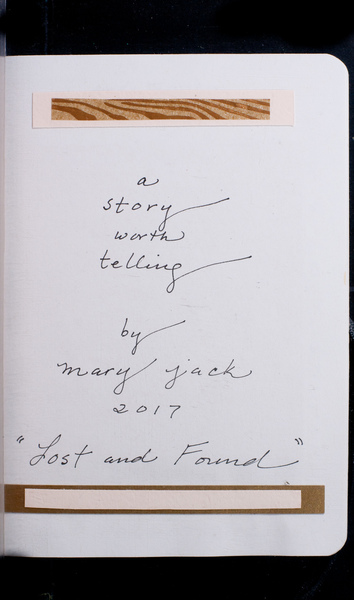 a
story
worth
telling
by
mary jack
2017
"Lost and Found"